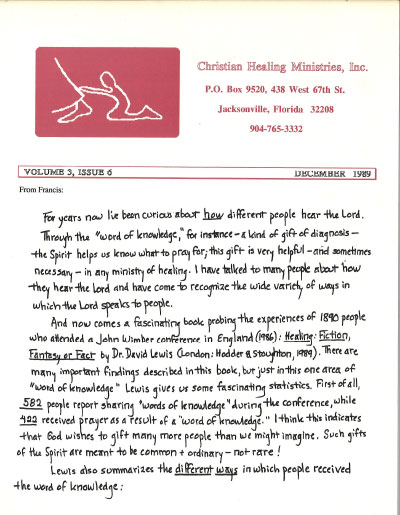 Christian Healing Ministries, Inc.
P.O. Box 9520, 438 West 67th St.
Jacksonville, Florida 32208
904-765-3332
VOLUME 3, ISSUE 6 DECEMBER 1989
From Francis:
For years now I've been curious about how different people hear the Lord.
Through the "word of knowledge," for instance - a kind of gift of diagnosis -
the Spirit helps us know what to pray for; this gift is very helpful - and sometimes
necessary - in any ministry of healing. I have talked to many people about how
they hear the Lord and have come to recognize the wide variety of ways in
which the Lord speaks to people.
And now comes a fascinating book probing the experiences of 1890 people
who attended a John Wimber conference in England (1986): Healing: Fiction,
Fantasy or Fact by Dr. David Lewis (London: Hodder & Stoughton, 1989). There are
many important findings described in this book, but just in this one area of
"word of knowledge" Lewis gives us some fascinating statistics. First of all,
582 people report sharing "words of knowledge" during the conference, while
422 received prayer as a result of a "word of knowledge." I think this indicates
that God wishes to gift many more people than we might imagine. Such gifts
of the Spirit are meant to be common + ordinary - not rare!
Lewis also summarizes the different ways in which people received
the word of knowledge: